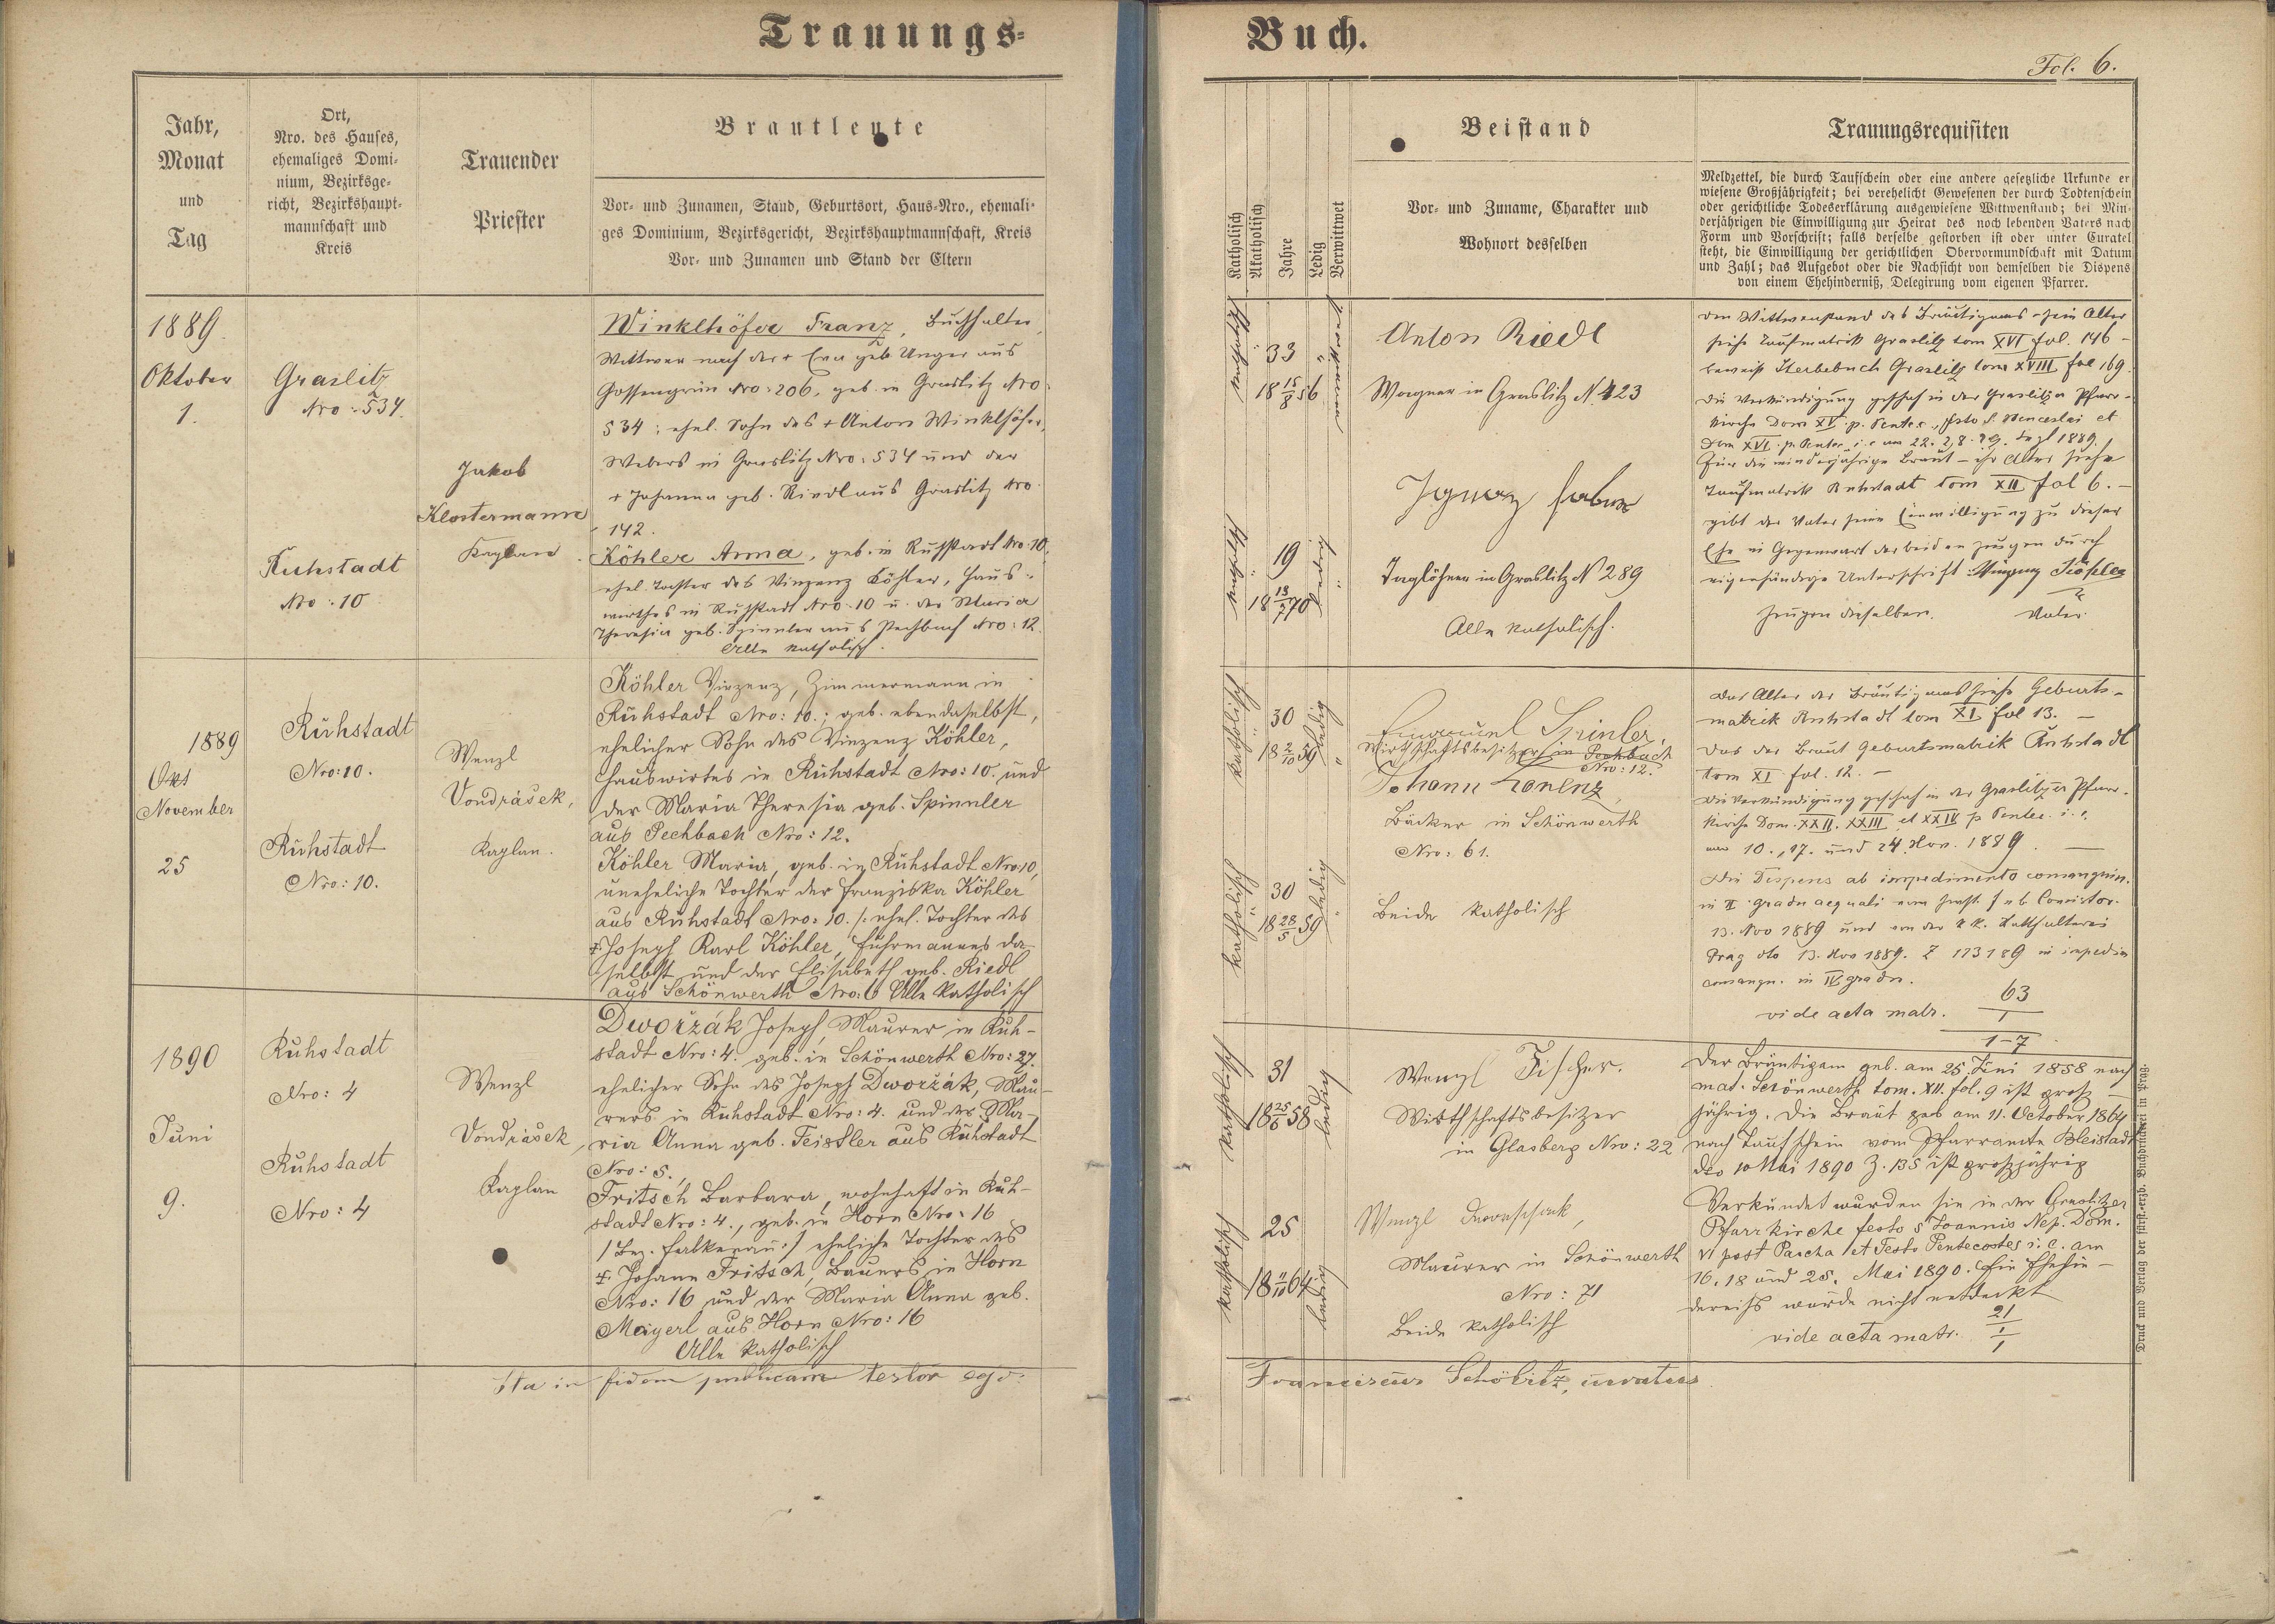 Trauungs-
Jahr,
Monat
und
Tag
Ort,
Nro. des Hauses,
ehemaliges Domi-
nium, Bezirksge-
richt, Bezirkshaupt-
mannschaft und
Kreis
Trauender
Priester
Brautleute
Vor- und Zunamen, Stand, Geburtsort, Haus-Nro., ehemali-
ges Dominium, Bezirksgericht, Bezirkshauptmannschaft, Kreis
Vor- und Zunamen und Stand der Eltern
1889
Oktober
1.
Graslitz
Nro: 534.
Ruhstadt
Nro: 10
Jakob
Klostermann
Kaplan
Winklhöfer Franz, Buchhalter,
Wittwer nach der + Eva geb. Unger aus
Gossengrün Nro: 206, geb. in Graslitz Nro
534; ehel. Sohn des + Anton Winklhöfer,
Webers in Graslitz Nro: 534 und der
+ Johanna geb. Riedl aus Graslitz Nro.
142.
Köhler Anna, geb. in Ruhstadt Nro. 10,
ehel. Tochter des Vinzenz Köhler, Haus-
wirthes in Ruhstadt Nro: 10 u. der Maria
Theresia geb. Spinnler aus Pechbach Nro: 12.
Alle katholisch.
1889
Okt
November
25
Ruhstadt
Nro: 10.
Ruhstadt
Nro: 10.
Wenzl
Vondrášek,
Kaplan.
Köhler Vinzenz, Zimmermann in
Ruhstadt Nro: 10.; geb. ebendaselbst,
ehelicher Sohn des Vinzenz Köhler,
Hauswirtes in Ruhstadt Nro: 10. und
der Maria Theresia geb. Spinnler
aus Pechbach Nro: 12.
Köhler Maria, geb. in Ruhstadt Nro 10,
uneheliche Tochter der Franziska Köhler
aus Ruhstadt Nro: 10. /: ehel. Tochter des
+ Joseph Karl Köhler, Fuhrmannes da-
selbst und der Elisabeth geb. Riedl
aus Schönwerth Nro: 6 Alle katholisch
1890
Juni
9.
Ruhstadt
Nro: 4
Ruhstadt
Nro: 4
Wenzl
Vondrášek,
Kaplan
Dwořzák Joseph, Maurer in Ruh-
stadt Nro: 4. geb. in Schönwerth Nro: 27.
ehelicher Sohn des Joseph Dwořzák, Mau-
rers in Ruhstadt Nro: 4. und der Ma-
ria Anna geb. Feistler aus Ruhstadt
Nro: 5.,
Fritsch Barbara, wohnhaft in Ruh-
stadt Nro: 4., geb. in Horn Nro: 16
/ Bez. Falkenau :/ eheliche Tochter des
+ Johann Fritsch, Bauers in Horn
Nro: 16 und der Maria Anna geb.
Mayerl aus Horn Nro: 16
Alle katholisch
Ita in fidem publicam testor ego:
Buch.
Fol. 6.
Katholisch
Akatholisch
Jahre
Ledig
Verwittwet
Beistand
Vor- und Zuname, Charakter und
Wohnort desselben
Trauungsrequisiten
Meldzettel, die durch Taufschein oder eine andere gesetzliche Urkunde er
wiesene Großjährigkeit; bei verehelicht Gewesenen der durch Todtenschein
oder gerichtliche Todeserklärung ausgewiesene Wittwenstand; bei Min-
derjährigen die Einwilligung zur Heirat des noch lebenden Vaters nach
Form und Vorschrift; falls derselbe gestorben ist oder unter Curatel
steht, die Einwilligung der gerichtlichen Obervormundschaft mit Datum
und Zahl; das Aufgebot oder die Nachsicht von demselben die Dispens
von einem Ehehinderniß, Delegirung vom eigenen Pfarrer.
katholisch
33
18 15/8 56
verwittwet
Anton Riedl
Wagner in Graslitz N. 423
katholisch
19
18 13/7 70
ledig
Ignaz
Taglöhner in Graslitz N 289
Alle katholisch.
Den Wittwenstand des Bräutigams - sein Alter
siehe Taufmatrik Graslitz tom XVI fol. 146 -
beweist Sterbebuch Graslitz tom XVIII fol 169.
Die Verkündigung geschah in der Graslitzer Pfarr-
kirche Dom XV. p. Pentec., festo S. Wenceslai et
Dom XVI. p. Pentec. i. e am 22. 28. 29. Sept 1889.
Für die minderjährige Braut - ihr Alter siehe
Taufmatrik Ruhstadt tom XII fol 6. -
gibt der Vater seine Einwilligung zu dieser
Ehe in Gegenwart der beiden Zeugen durch
eigenhändige Unterschrift: Vinzenz Köhler
Zeugen dieselben. Vater
katholisch
30
18 2/10 59
ledig
Emanuel Spinler,
Wirthschaftsbesitzer in Pechbach
Nro: 12.
Johann Lorenz,
Bäcker in Schönwerth
Nro: 61.
katholisch
30
18 28/5 59
ledig
Beide katholisch
Das Alter des Bräutigams siehe Geburts-
matrik Ruhstadt tom XI fol 13. -
Das der Braut Geburtsmatrik Ruhstadt
tom XI. fol. 12. -
Die Verkündigung geschah in der Graslitzer Pfarr-
kirche Dom. XXII. XXIII et XXIV p Pentec. i. e.
am 10., 17. und 24. Nov. 1889. -
Die Dispens ab impedimento consanguin.
in II gradu aequali vom Consistor.
13. Nov 1889 und von der k k. Statthalterei
Prag dto 13. Nov 1889. Z 113189 in impedim
consangu. in IV gradu.
vide acta matr. 63/1-7
katholisch
31
18 25/6 58
ledig
Wenzl Fischer.
Wirthschaftsbesitzer
in Glasberg Nro: 22
katholisch
25
18 11/10 64
ledig
Wenzl Dworschak,
Maurer in Schönwerth
Nro: 71
Beide katholisch
Der Bräutigam geb. am 25. Juni 1858 nach
mat. Schönwerth tom. XII. fol. 9 ist groß-
jährig. Die Braut geb am 11. October 1864
nach Taufschein vom Pfarramte Bleistadt
ddo 10 Mai 1890 Z. 135 ist großjährig
Verkündet wurden sie in der Graslitzer
Pfarrkirche festo S Joannis Nep. Dom.
VI post Pascha et Festo Pentecostes i. e. am
16. 18 und 25. Mai 1890. Ein Ehehin-
derniß wurde nicht entdeckt
vide acta matr. 21/1
Franciscus Schöbitz, curatus
Druck und Verlag der fürst.-erzb. Buchdruckerei in Prag.